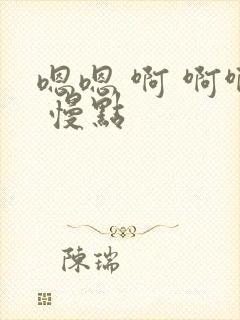 嗯嗯 啊 啊啊
慢點
陳瑞